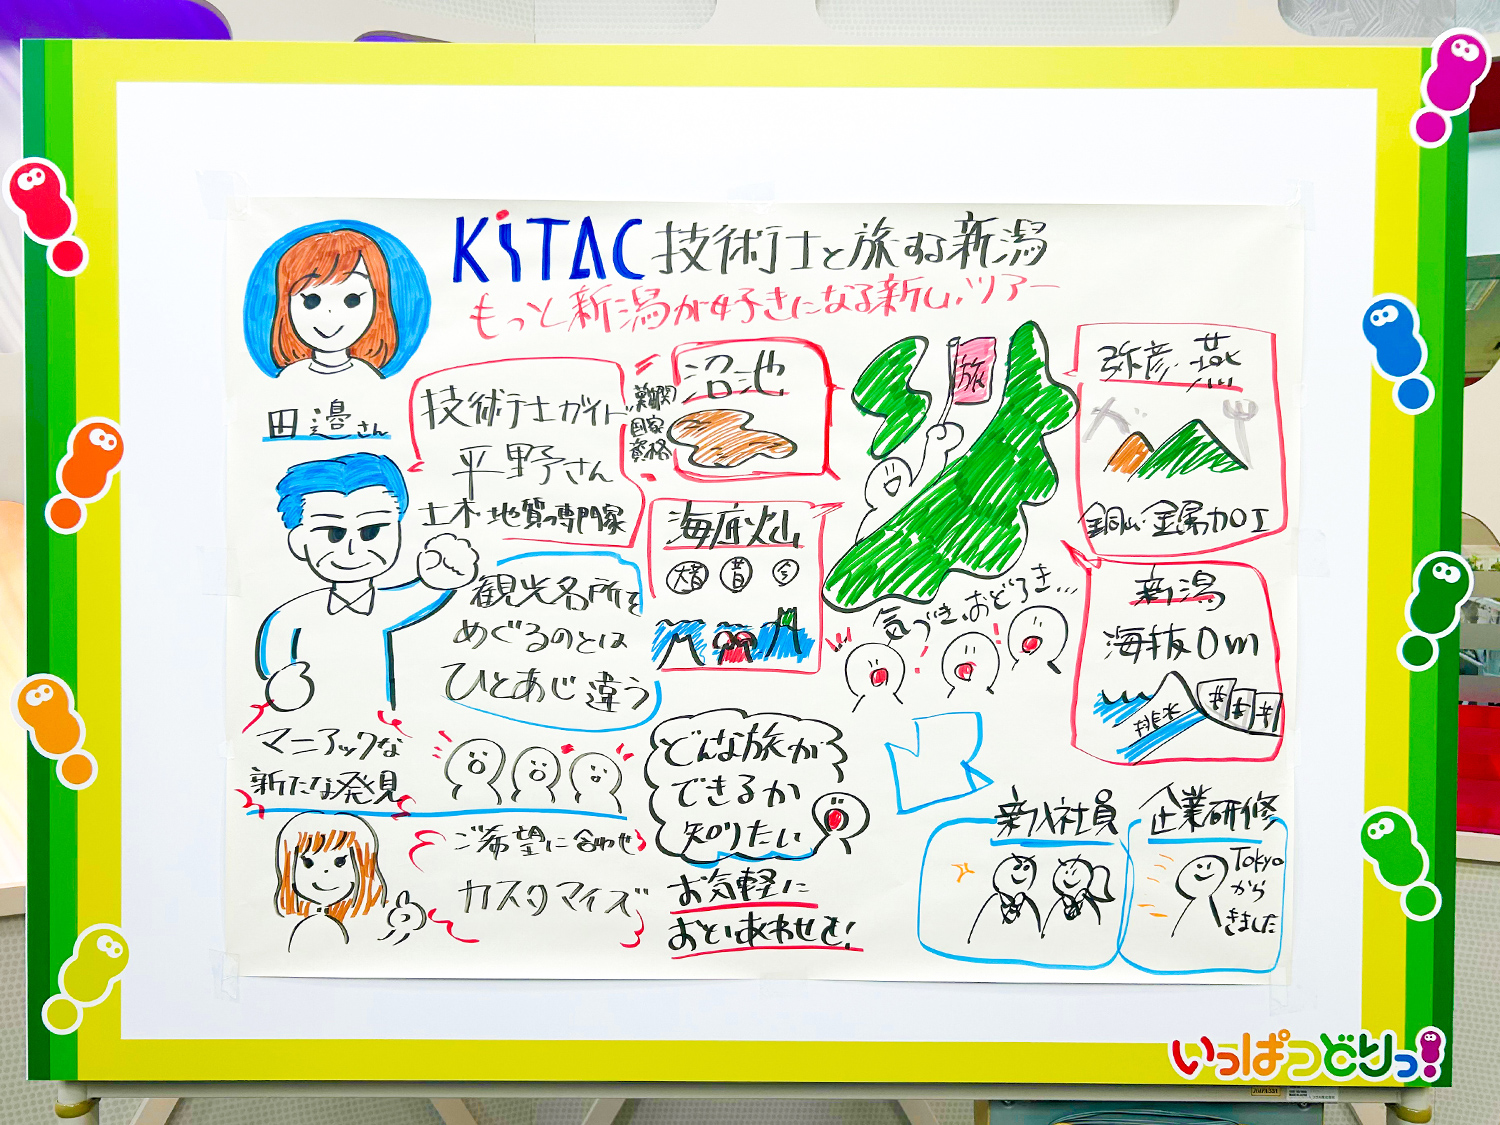 KiTAC 技術士と旅する新潟
もっと新潟が好きになる新しいツアー
田邉さん
技術士ガイド
平野さん
土木・地質の専門家
難関
国家
資格
沼池
旅
弥彦・燕
銅山・金属加工
海底火山
大昔
昔
今
観光名所を
めぐるのとは
ひとあじ違う
気づき、おどろき…
新潟
海抜0m
排水
マニアックな
新たな発見
どんな旅が
できるか
知りたい
ご希望に合わせ
カスタマイズ
お気軽に
おといあわせを!
新入社員
企業研修
Tokyo
から
きました
いっぱつどりっ!